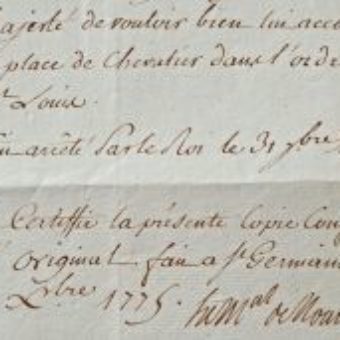 ajesté de vouloir bien lui acco
place de Chevalier dans l'ordr
St Louis.
arrêté Par le Roi le 31 xbre
Certiffie la présente Copie Con
original fait a St Germain
Xbre 1775.